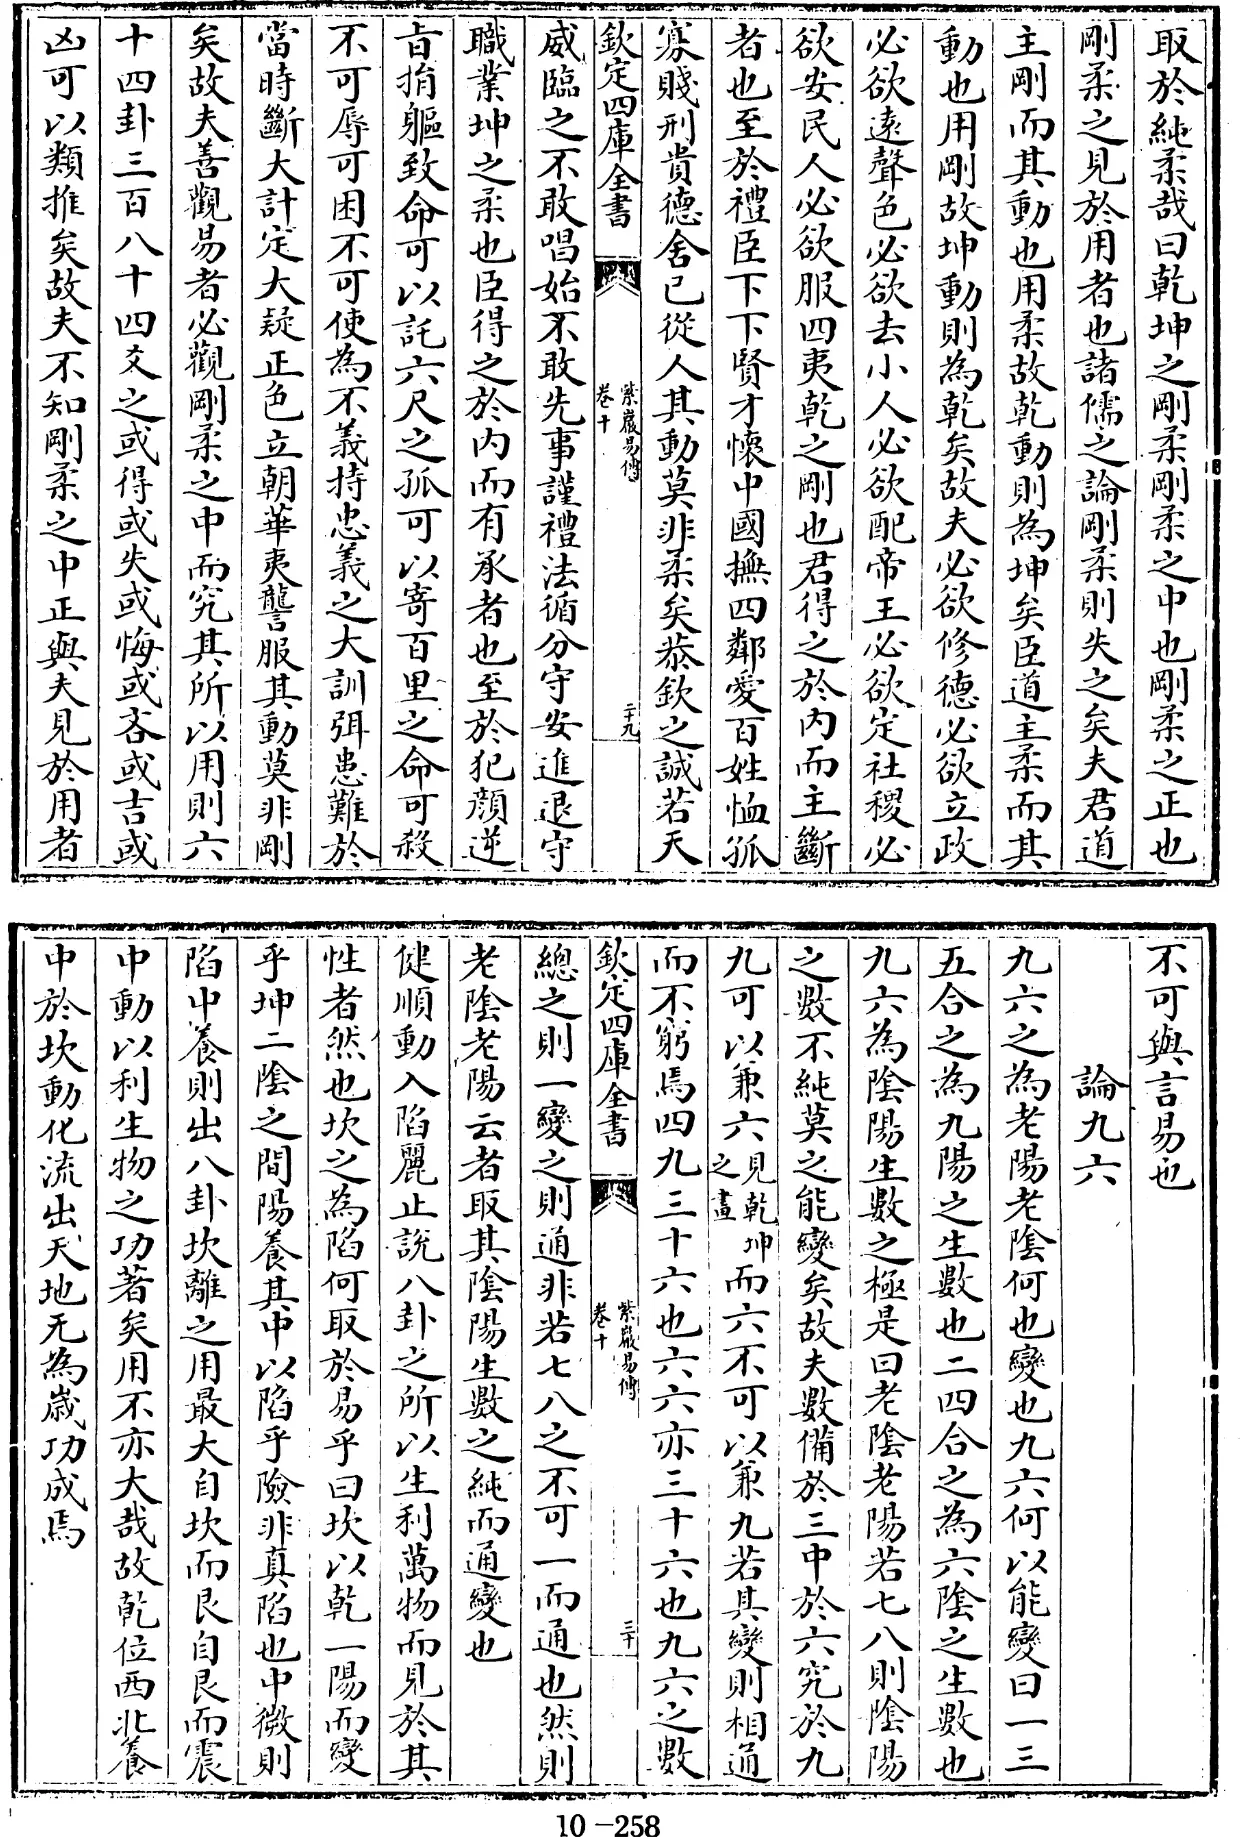 取於純柔哉曰乾坤之剛柔剛柔之中也剛柔之正也
剛柔之見於用者也諸儒之論剛柔則失之矣夫君道
主剛而其動也用柔故乾動則為坤矣臣道主柔而其
動也用剛故坤動則為乾矣故夫必欲修德必欲立政
必欲遠聲色必欲去小人必欲配帝王必欲定社稷必
欲安民人必欲服四夷乾之剛也君得之於内而主斷
者也至於禮臣下下賢才懷中國撫四鄰愛百姓恤孤
寡賤刑貴德舍己從人其動莫非柔矣恭欽之誠若天
欽定四庫全書
紫巖易傳
卷十
二十九
威臨之不敢唱始不敢先事謹禮法循分守安進退守
職業坤之柔也臣得之於内而有承者也至於犯顔逆
㫖捐軀致命可以託六尺之孤可以寄百里之命可殺
不可辱可困不可使為不義持忠義之大訓弭患難於
當時斷大計定大疑正色立朝華夷讋服其動莫非剛
矣故夫善觀易者必觀剛柔之中而究其所以用則六
十四卦三百八十四爻之或得或失或悔或吝或吉或
凶可以類推矣故夫不知剛柔之中正與夫見於用者
不可與言易也
論九六
九六之為老陽老陰何也變也九六何以能變曰一三
五合之為九陽之生數也二四合之為六陰之生數也
九六為陰陽生數之極是曰老陰老陽若七八則陰陽
之數不純莫之能變矣故夫數備於三中於六究於九
九可以兼六見乾坤之畫而六不可以兼九若其變則相通
而不窮焉四九三十六也六六亦三十六也九六之數
欽定四庫全書
紫巖易傳
卷十
三十
總之則一變之則通非若七八之不可一而通也然則
老陰老陽云者取其陰陽生數之純而通變也
健順動入陷麗止說八卦之所以生利萬物而見於其
性者然也坎之為陷何取於易乎曰坎以乾一陽而變
乎坤二陰之間陽養其中以陷乎險非真陷也中微則
陷中養則出八卦坎離之用最大自坎而艮自艮而震
中動以利生物之功著矣用不亦大哉故乾位西北養
中於坎動化流出天地无為歳功成焉
10-258